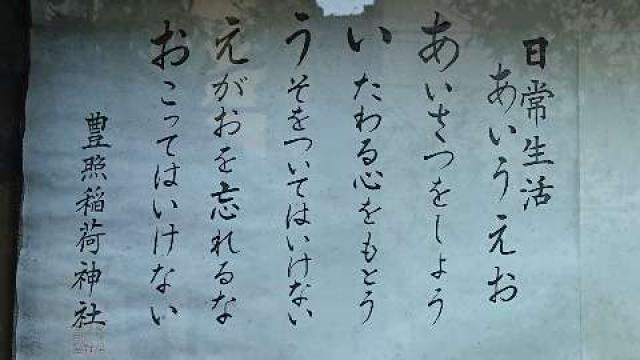 日常生活
あいうえお
あいさつをしよう
いたわる心をもとう
うそをついてはいけない
えがおを忘れるな
おこってはいけない
豊照稲荷神社